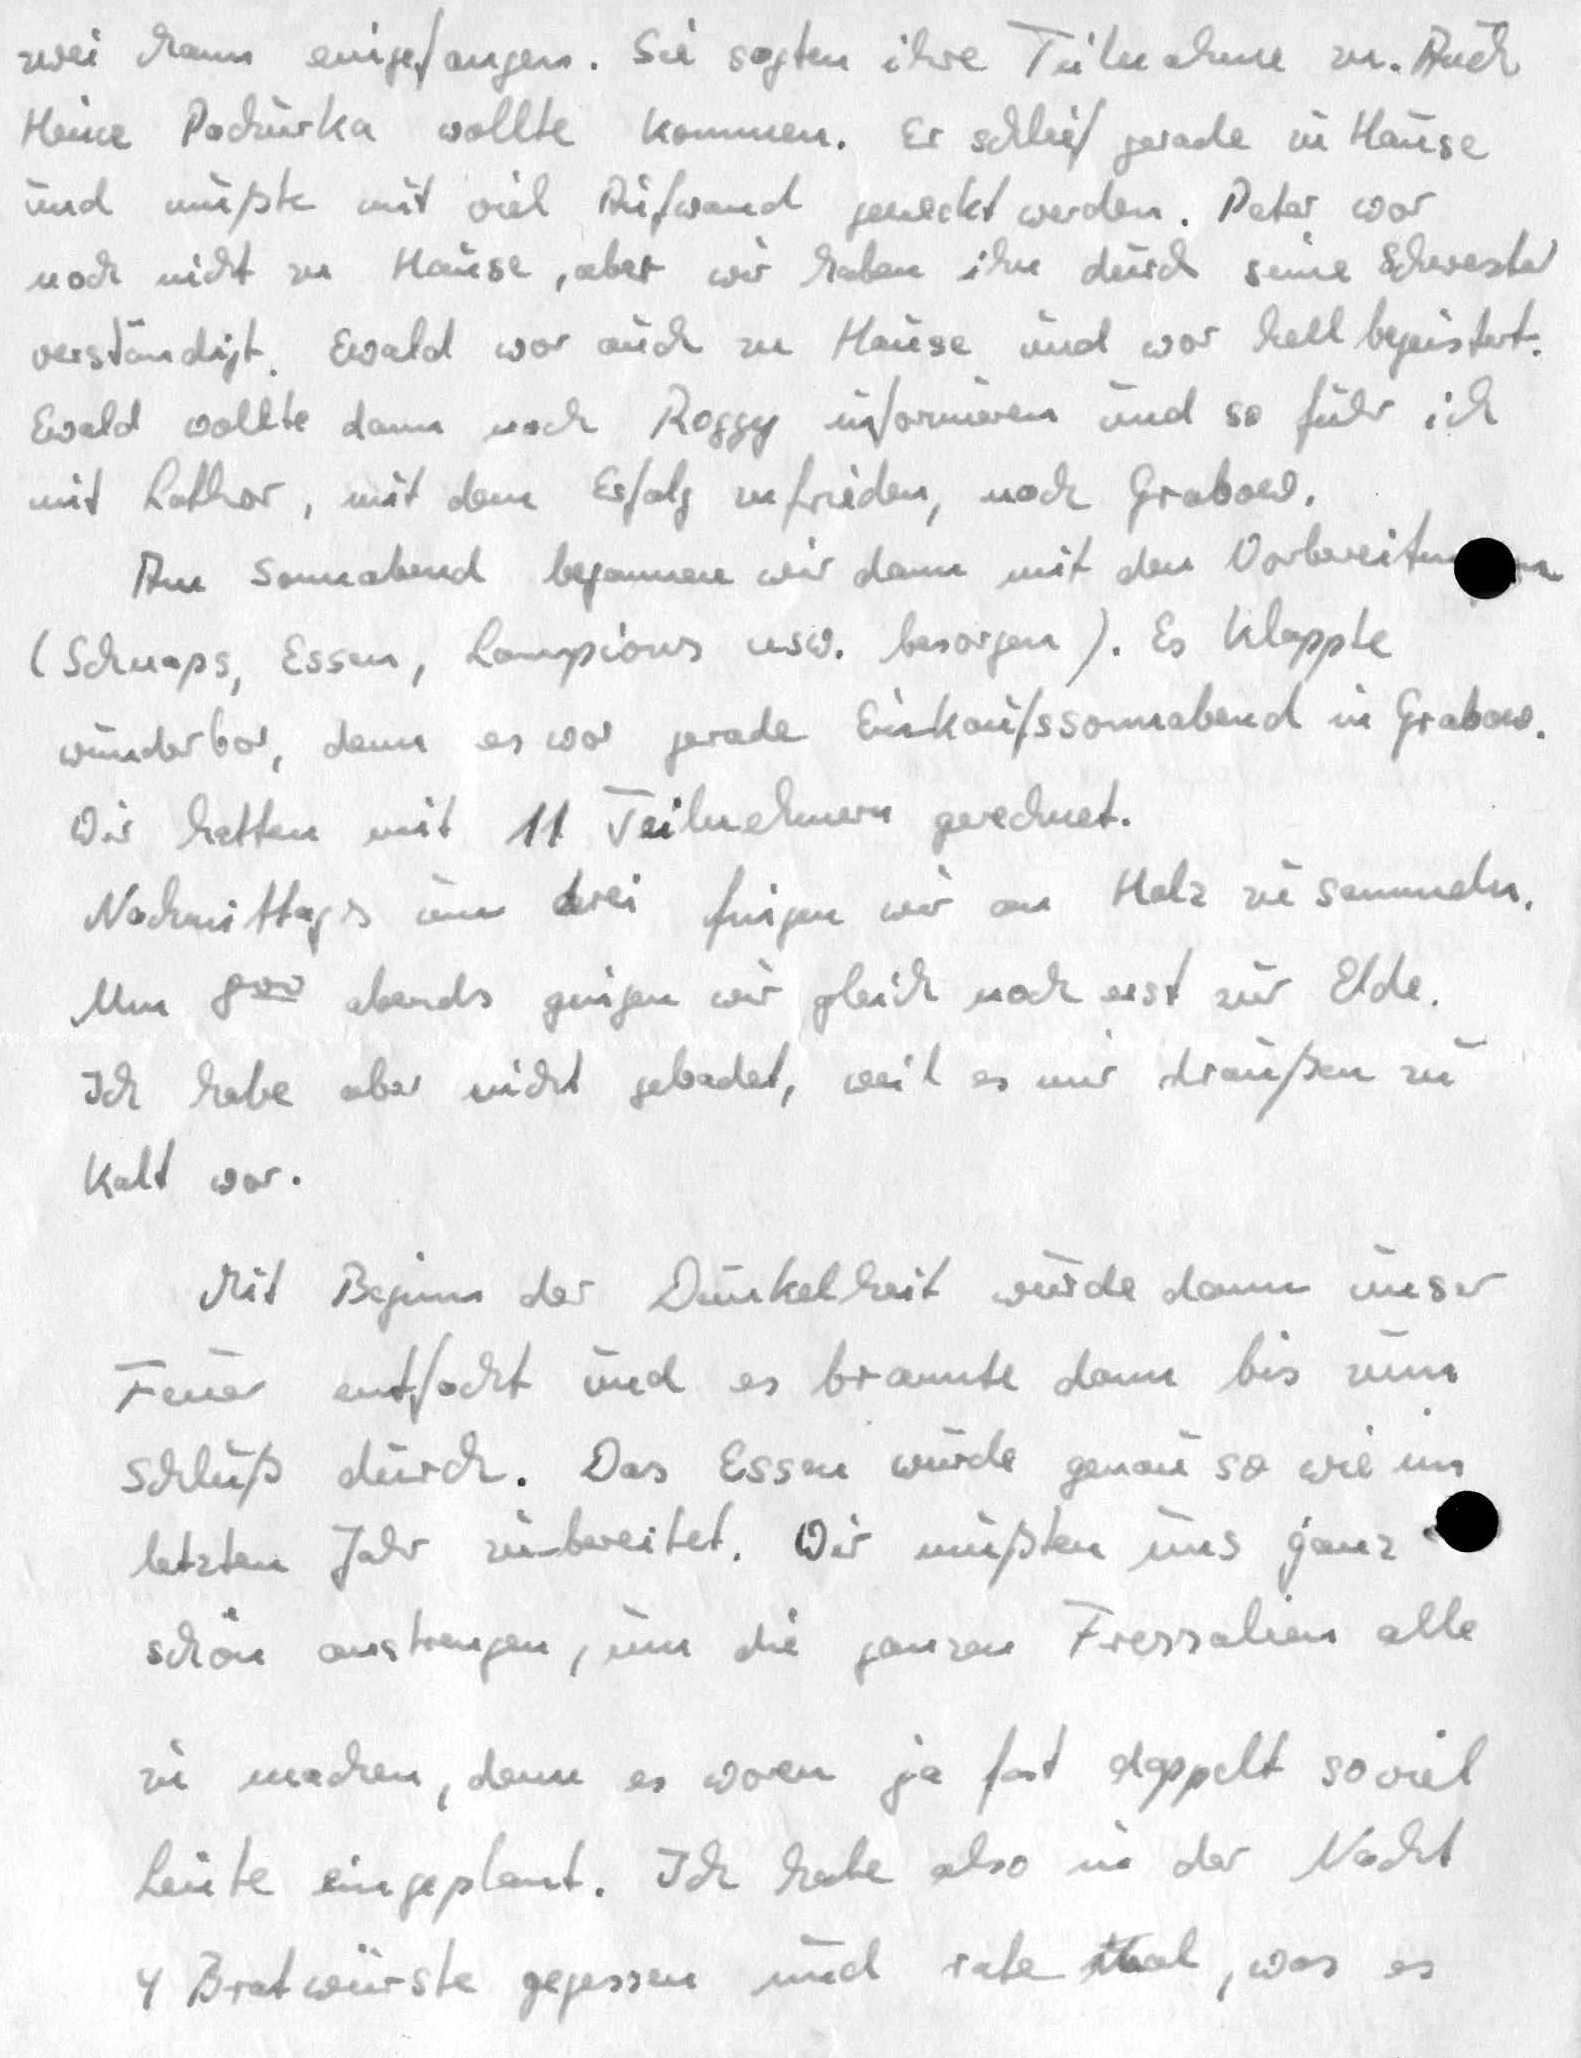 zwei Mann eingefangen. Sie sagten ihre Teilnahme zu. Auch
Heinz Pochurka wollte kommen. Er schlief gerade zu Hause
und mußte mit viel Aufwand geweckt werden. Peter war
noch nicht zu Hause, aber wir haben ihn durch seine Schwester
verständigt. Ewald war auch zu Hause und war hell begeistert.
Ewald wollte dann noch Roggy informieren und so fuhr ich
mit Lothar, mit dem Erfolg zufrieden, nach Grabow.
Am Sonnabend begannen wir dann mit den
(Schnaps, Essen, Lampions usw. besorgen). Es klappte
wunderbar, denn es war gerade Einkaufssonnabend in Grabow.
Wir hatten mit 11 Teilnehmern gerechnet.
Nachmittags um drei fingen wir an Holz zu sammeln.
Um 8⁰⁰ abends gingen wir gleich noch erst zur Elde.
Ich habe aber nicht gebadet, weil es mir draußen zu
kalt war.
Mit Beginn der Dunkelheit wurde dann unser
Feuer entfacht und es brannte dann bis zum
Schluß durch. Das Essen wurde genau so wie im
letzten Jahr zubereitet. Wir mußten uns ganz
schön anstrengen, um die ganzen Fressalien alle
zu machen, denn es waren ja fast doppelt soviel
Leute eingeplant. Ich habe also in der Nacht
4 Bratwürste gegessen und rate mal, was es